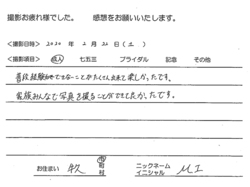 撮影お疲れ様でした。　感想をお願いいたします。
<撮影日時>　2020 年 2 月 22 日 (土)
<撮影項目>　成人　七五三　ブライダル　記念　その他
普段経験できないことがたくさん出来て楽しかったです。
家族みんなで写真を撮ることができてよかったです。
お住まい　　市　町　村　ニックネーム　イニシャル　M I